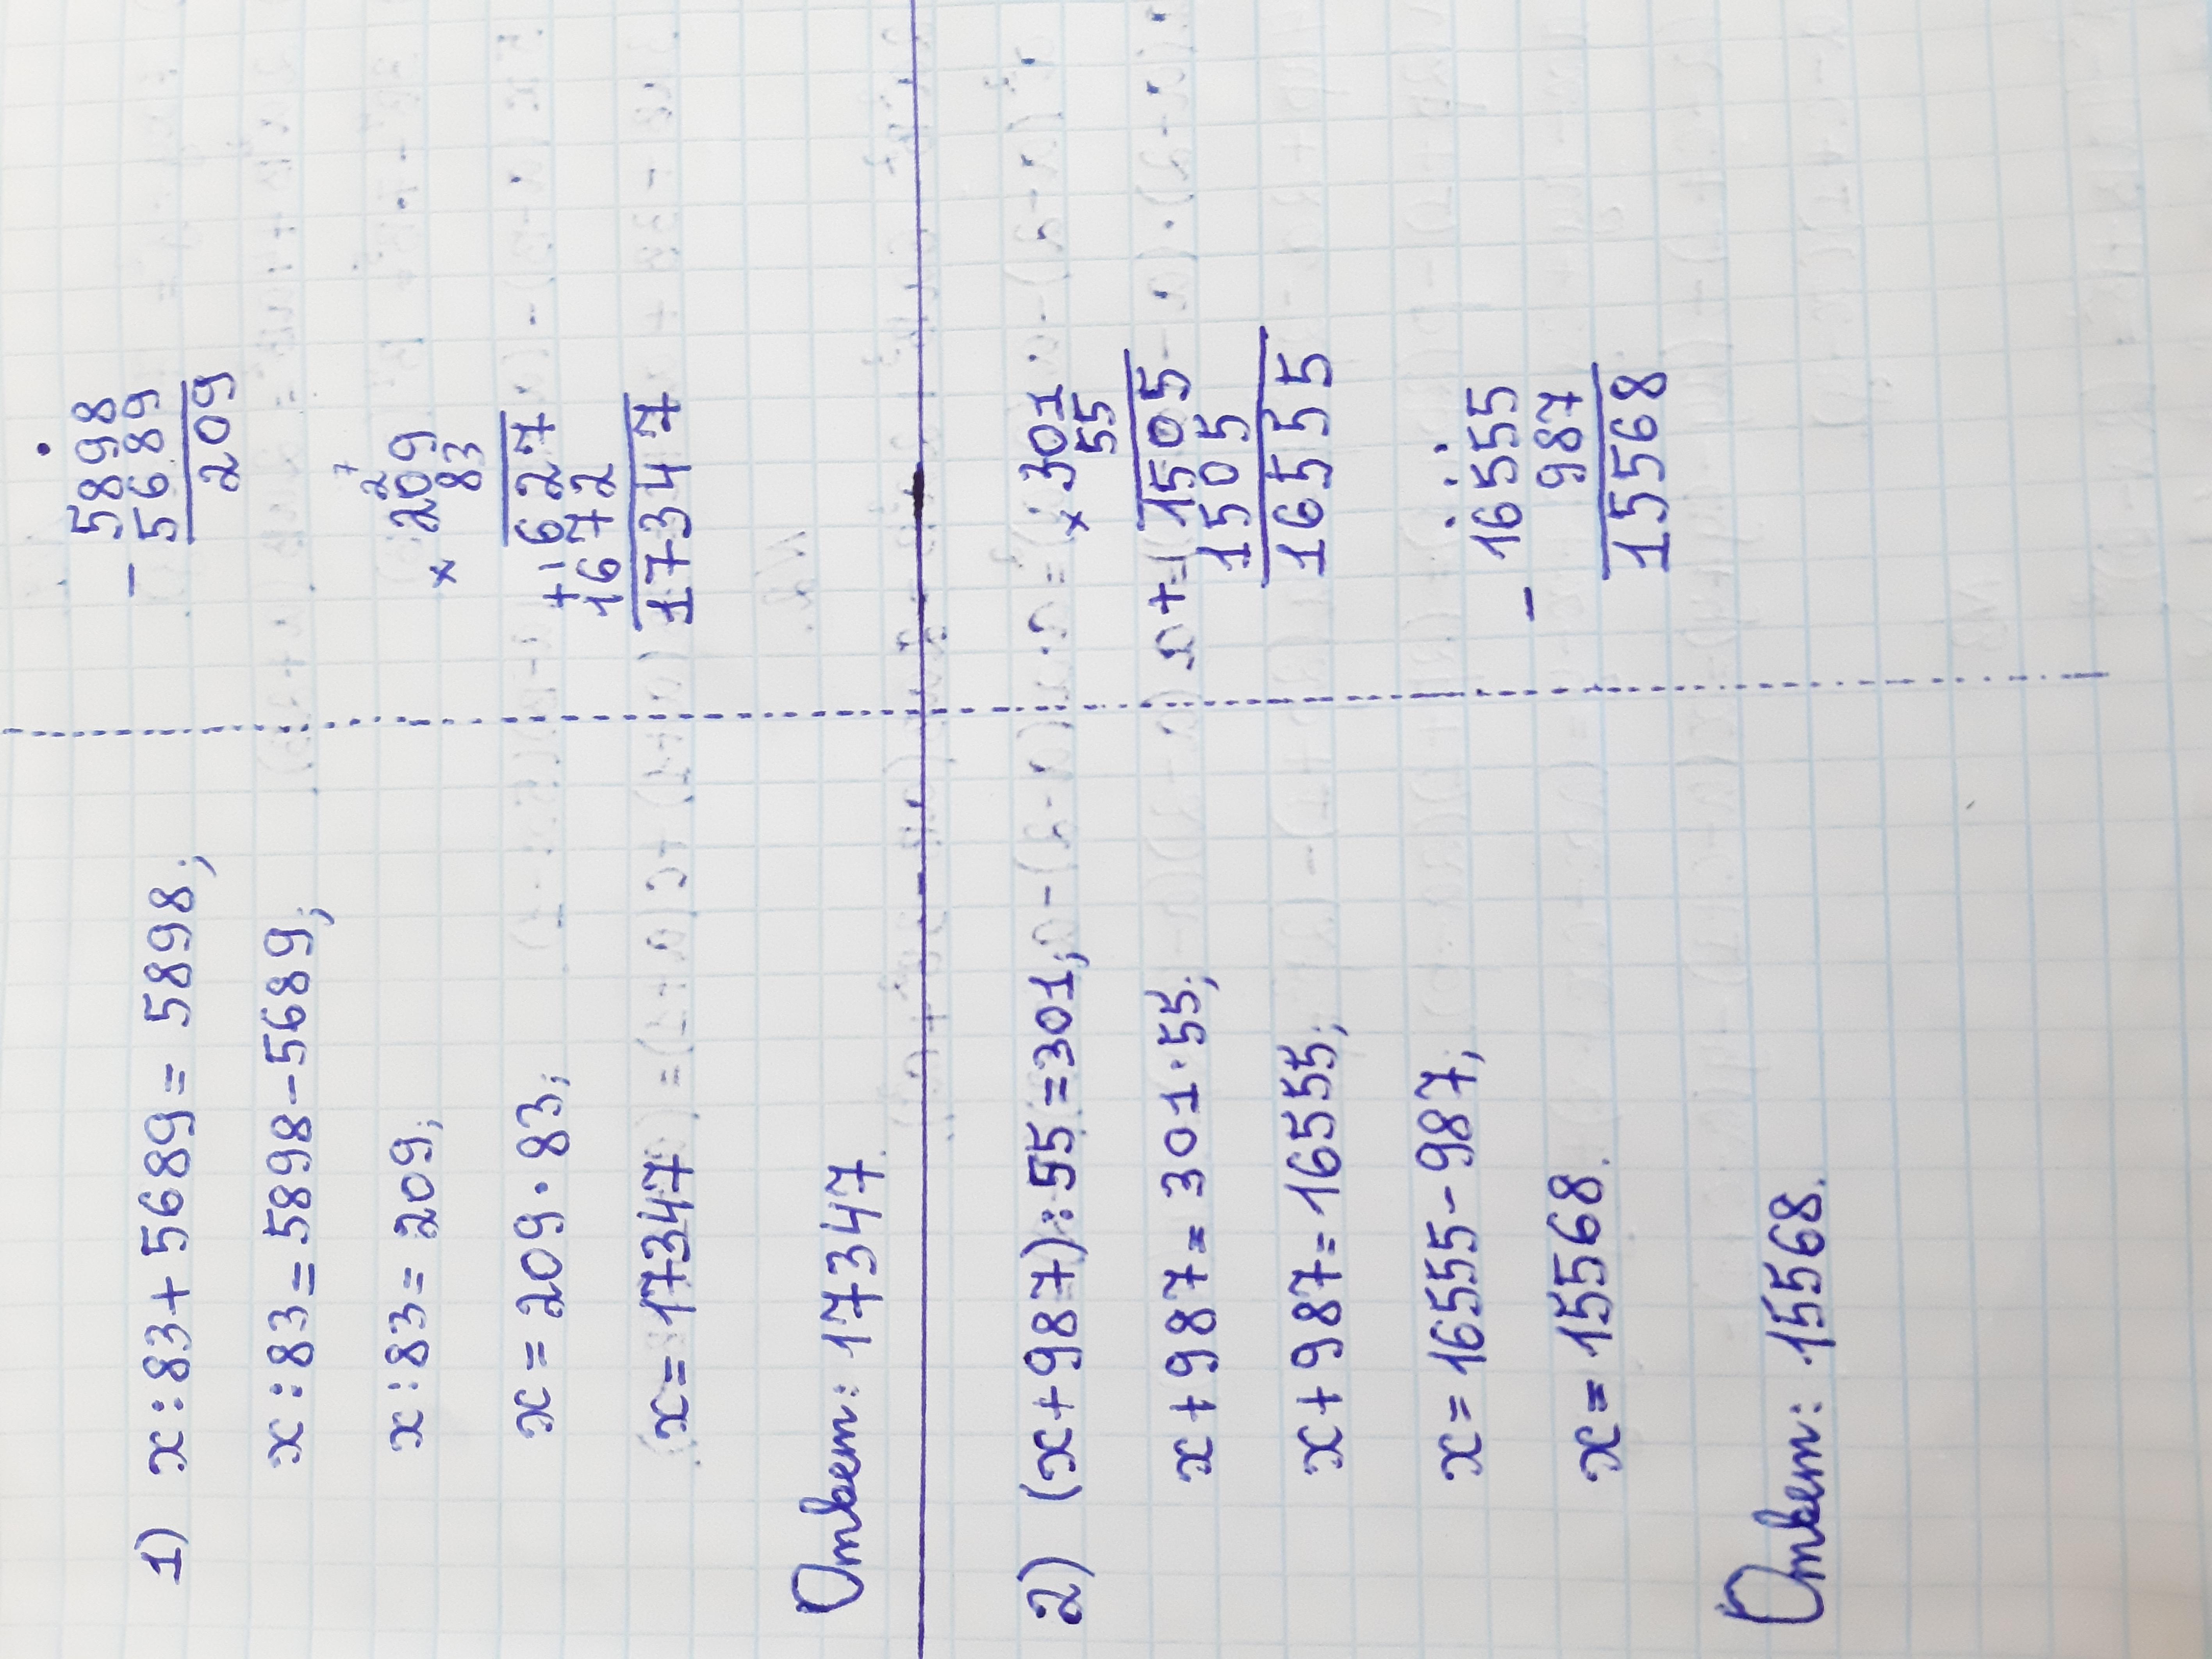 1) x : 83 + 5689 = 5898;
x : 83 = 5898 - 5689;
x : 83 = 209;
x = 209 · 83;
x = 17347
Ответ: 17347.
- 5898
5689
209
7
2
× 209
83
+ 627
1672
17347
2) (x + 987) : 55 = 301;
x + 987 = 301 · 55;
x + 987 = 16555;
x = 16555 - 987;
x = 15568.
Ответ: 15568.
× 301
55
+ 1505
1505
16555
- 16555
987
15568